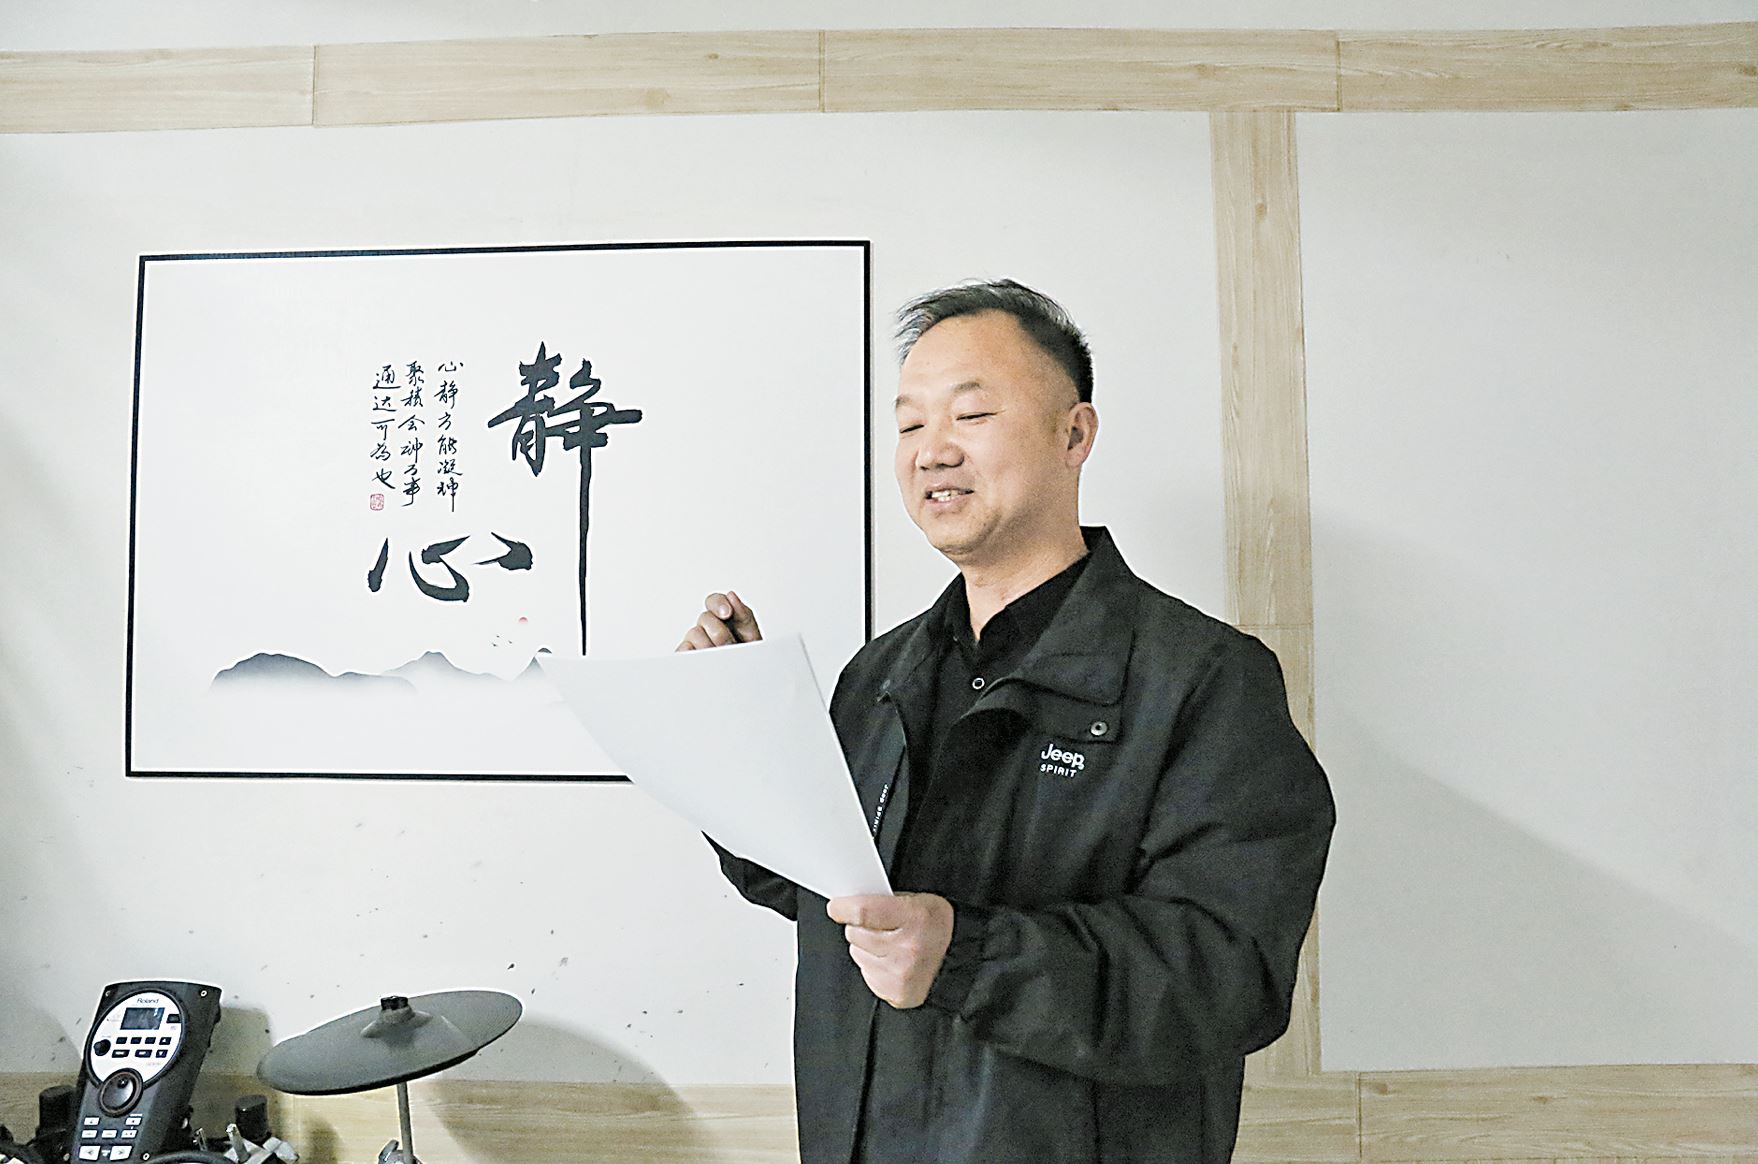 静
心
心静方能凝神
聚精会神万事
通达可为也
Jeep
SPIRIT
Roland